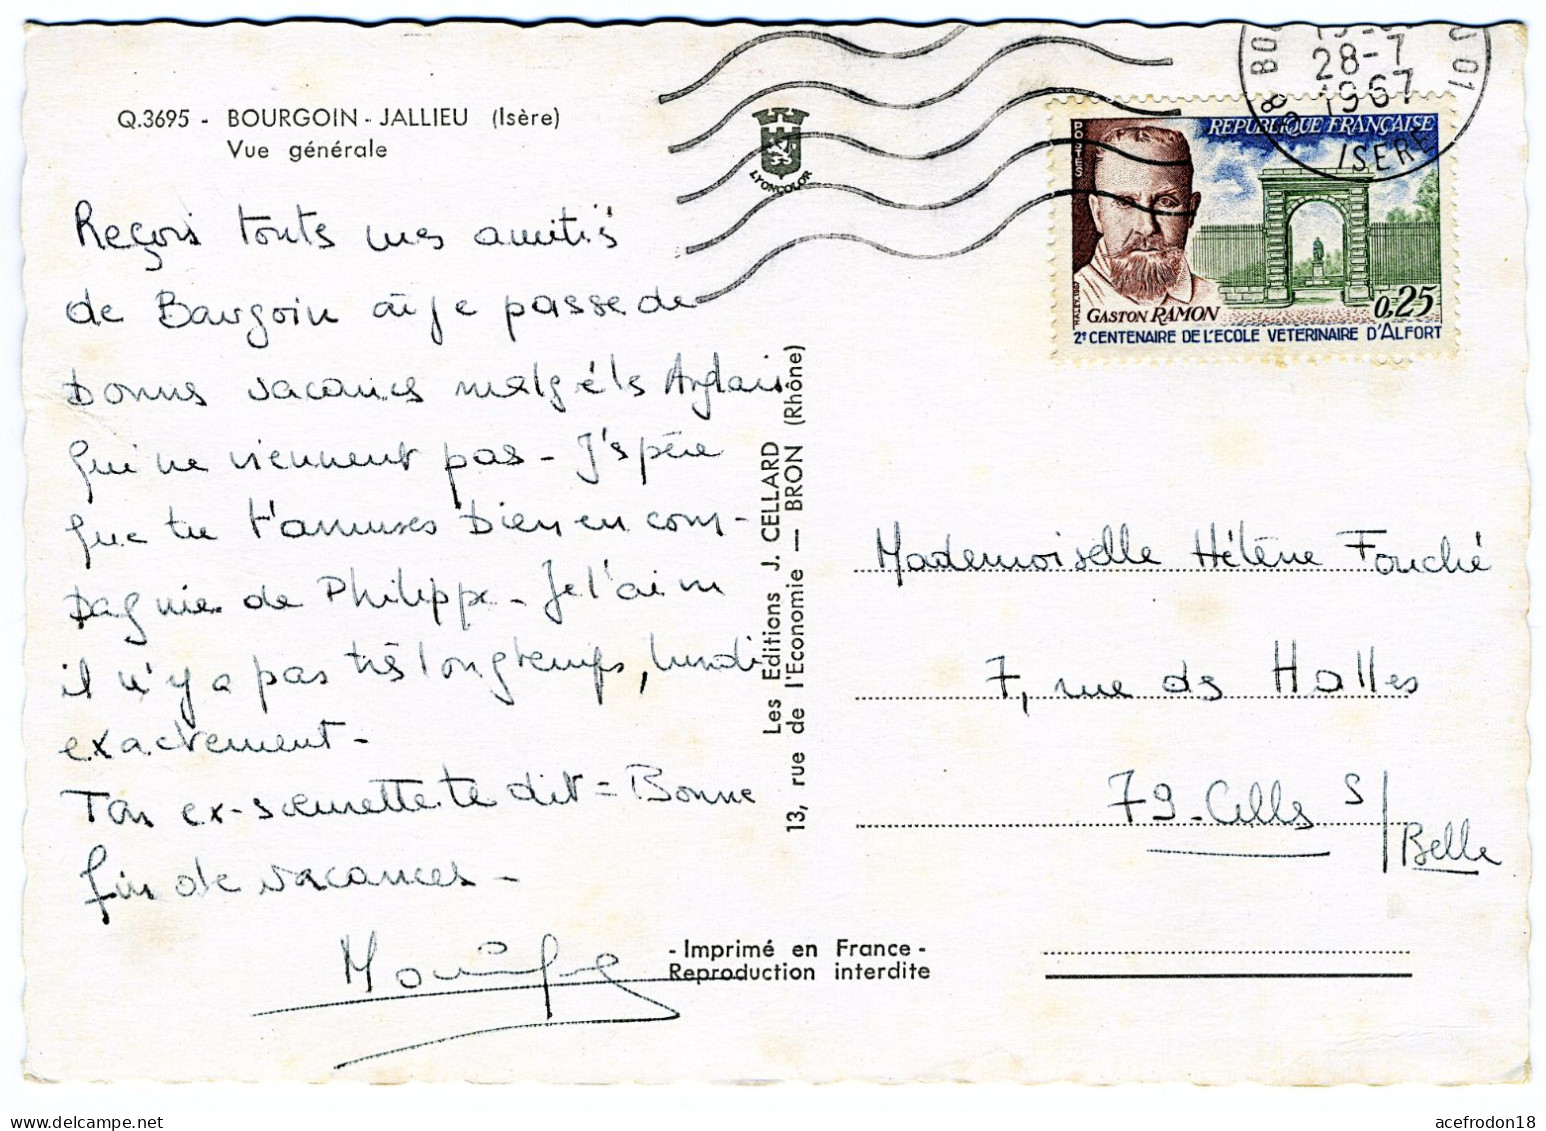 Q.3695 - BOURGOIN - JALLIEU (Isère)
Vue générale
LYONCOLOR
28-7
1967
ISERE
POSTES
REPUBLIQUE FRANÇAISE
GASTON RAMON
0,25
2e CENTENAIRE DE L'ECOLE VETERINAIRE D'ALFORT
Reçois touts mes amitiés
de Bourgoin où je passe de
bonnes vacances malgré ls Anglais
qui ne viennent pas - J'spére
que tu t'amuses bien en com-
pagnie de Philippe - Je l'ai vu
il n'y a pas très longtemps, lundi
exactement -
Ton ex-sœurette te dit = Bonne
fin de vacances -
Les Editions J. CELLARD
13, rue de l'Economie — BRON (Rhône)
- Imprimé en France -
Reproduction interdite
Mademoiselle Hélène Fouché
7, rue des Halles
79-Celles s/
Belle
acefrodon18